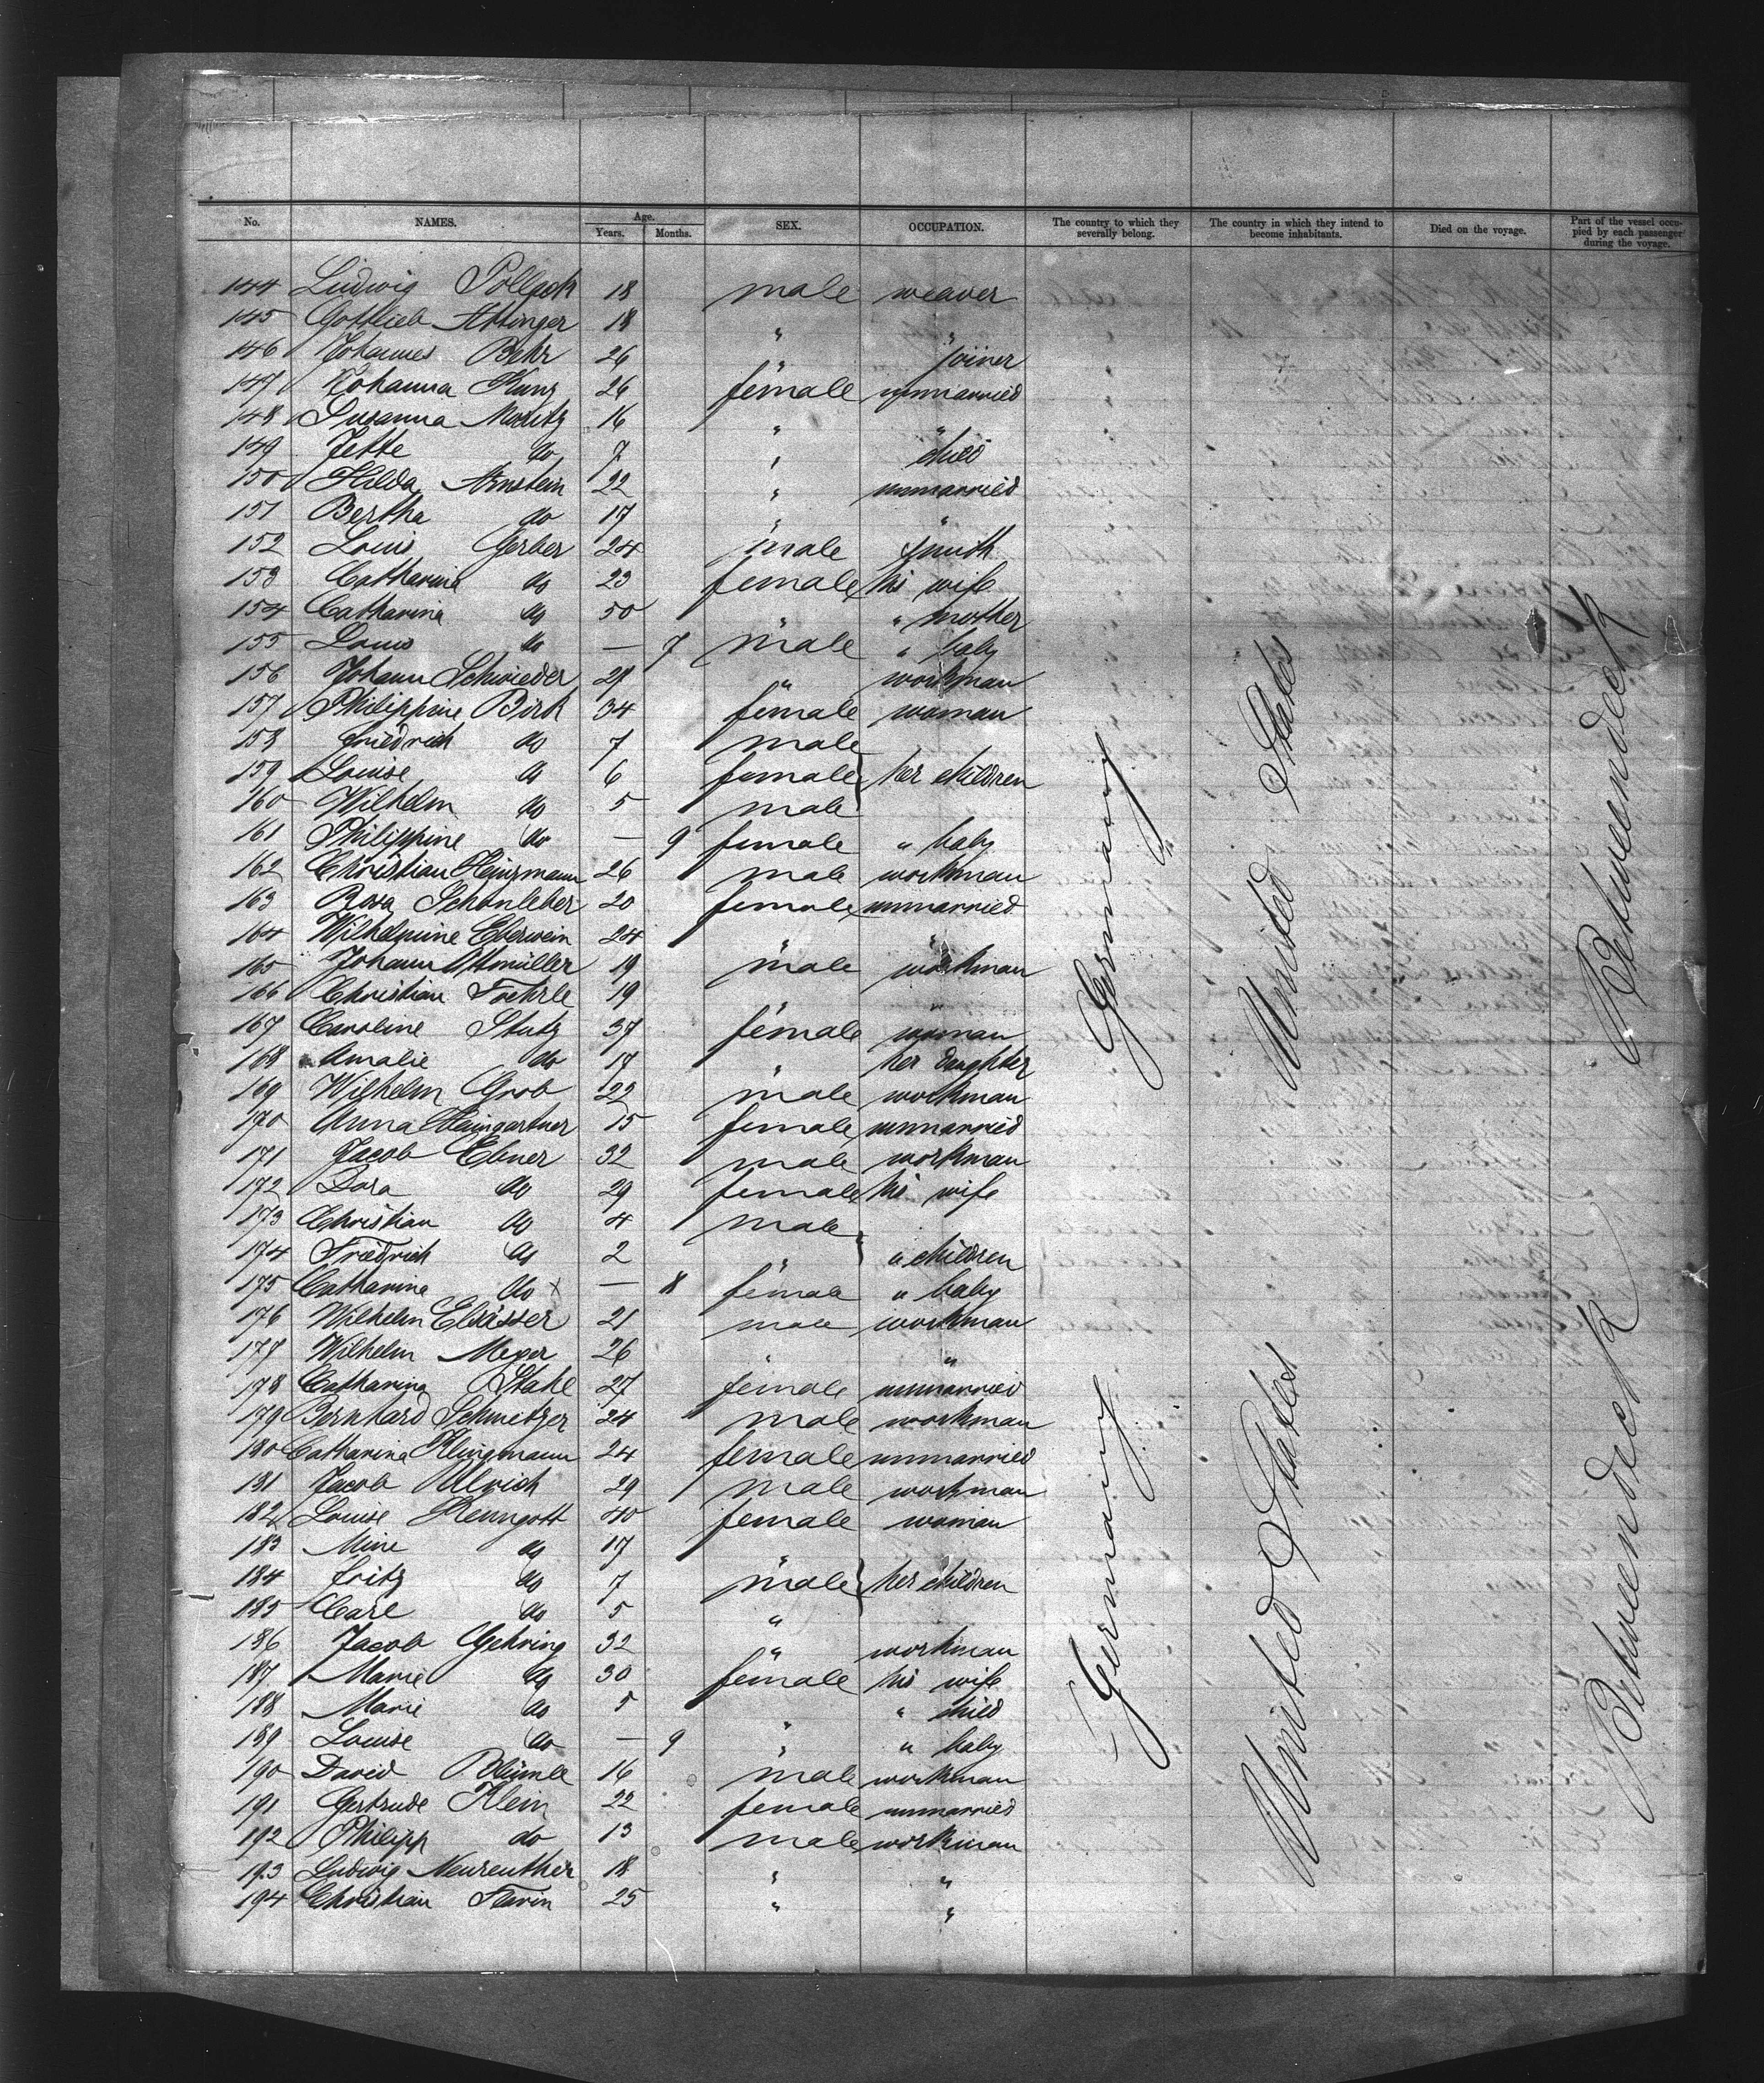 No. NAMES. Age. Years. Months. SEX. OCCUPATION. The country to which they severally belong. The country in which they intend to become inhabitants. Died on the voyage. Part of the vessel occupied by each passenger during the voyage.
144 Ludwig Pollack 18 male weaver
145 Gottlieb Attinger 18 " "
146 Johannes Behr 26 " joiner
147 Johanna Kunz 26 female unmarried
148 Susanna Moritz 16 " "
149 Jette do 7 " child
150 Hilda Arnstein 22 " unmarried
151 Bertha do 17 " "
152 Louis Gerber 24 male smith
153 Catharina do 23 female his wife
154 Catharina do 50 " " mother
155 Louis do — 7 male " baby
156 Johann Schwieder 29 " workman
157 Philippine Birk 34 female woman
158 Friedrich do 7 male
159 Louise do 6 female her children
160 Wilhelm do 5 male
161 Philippine do — 9 female " baby
162 Christian Heinzmann 26 male workman
163 Rosa Schönleber 20 female unmarried
164 Wilhelmine Eberwein 24 " "
165 Johann Altmüller 19 male workman
166 Christian Foehrle 19 " "
167 Caroline Stutz 37 female woman
168 Amalie do 17 " her daughter
169 Wilhelm Grob 22 male workman
170 Anna Haingartner 15 female unmarried
171 Jacob Ebner 32 male workman
172 Dora do 29 female his wife
173 Christian do 4 male
174 Friedrich do 2 " " children
175 Catharina do x — 8 female " baby
176 Wilhelm Elsässer 21 male workman
177 Wilhelm Meyer 26 " "
178 Catharina Stahl 27 female unmarried
179 Bernhard Schmetzer 24 male workman
180 Catharina Klingmann 24 female unmarried
181 Jacob Ulrich 29 male workman
182 Louise Kenngott 40 female woman
183 Mine do 17 "
184 Fritz do 7 male her children
185 Carl do 5 "
186 Jacob Gehring 32 " workman
187 Marie do 30 female his wife
188 Marie do 5 " " child
189 Louise do — 9 " " baby
190 David Blümle 16 male workman
191 Gertrude Klein 22 female unmarried
192 Philipp do 13 male workman
193 Ludwig Neureuther 18 " "
194 Christian Flavin 25 " "
Germany
United States
Betweendeck
Germany
United States
Betweendeck